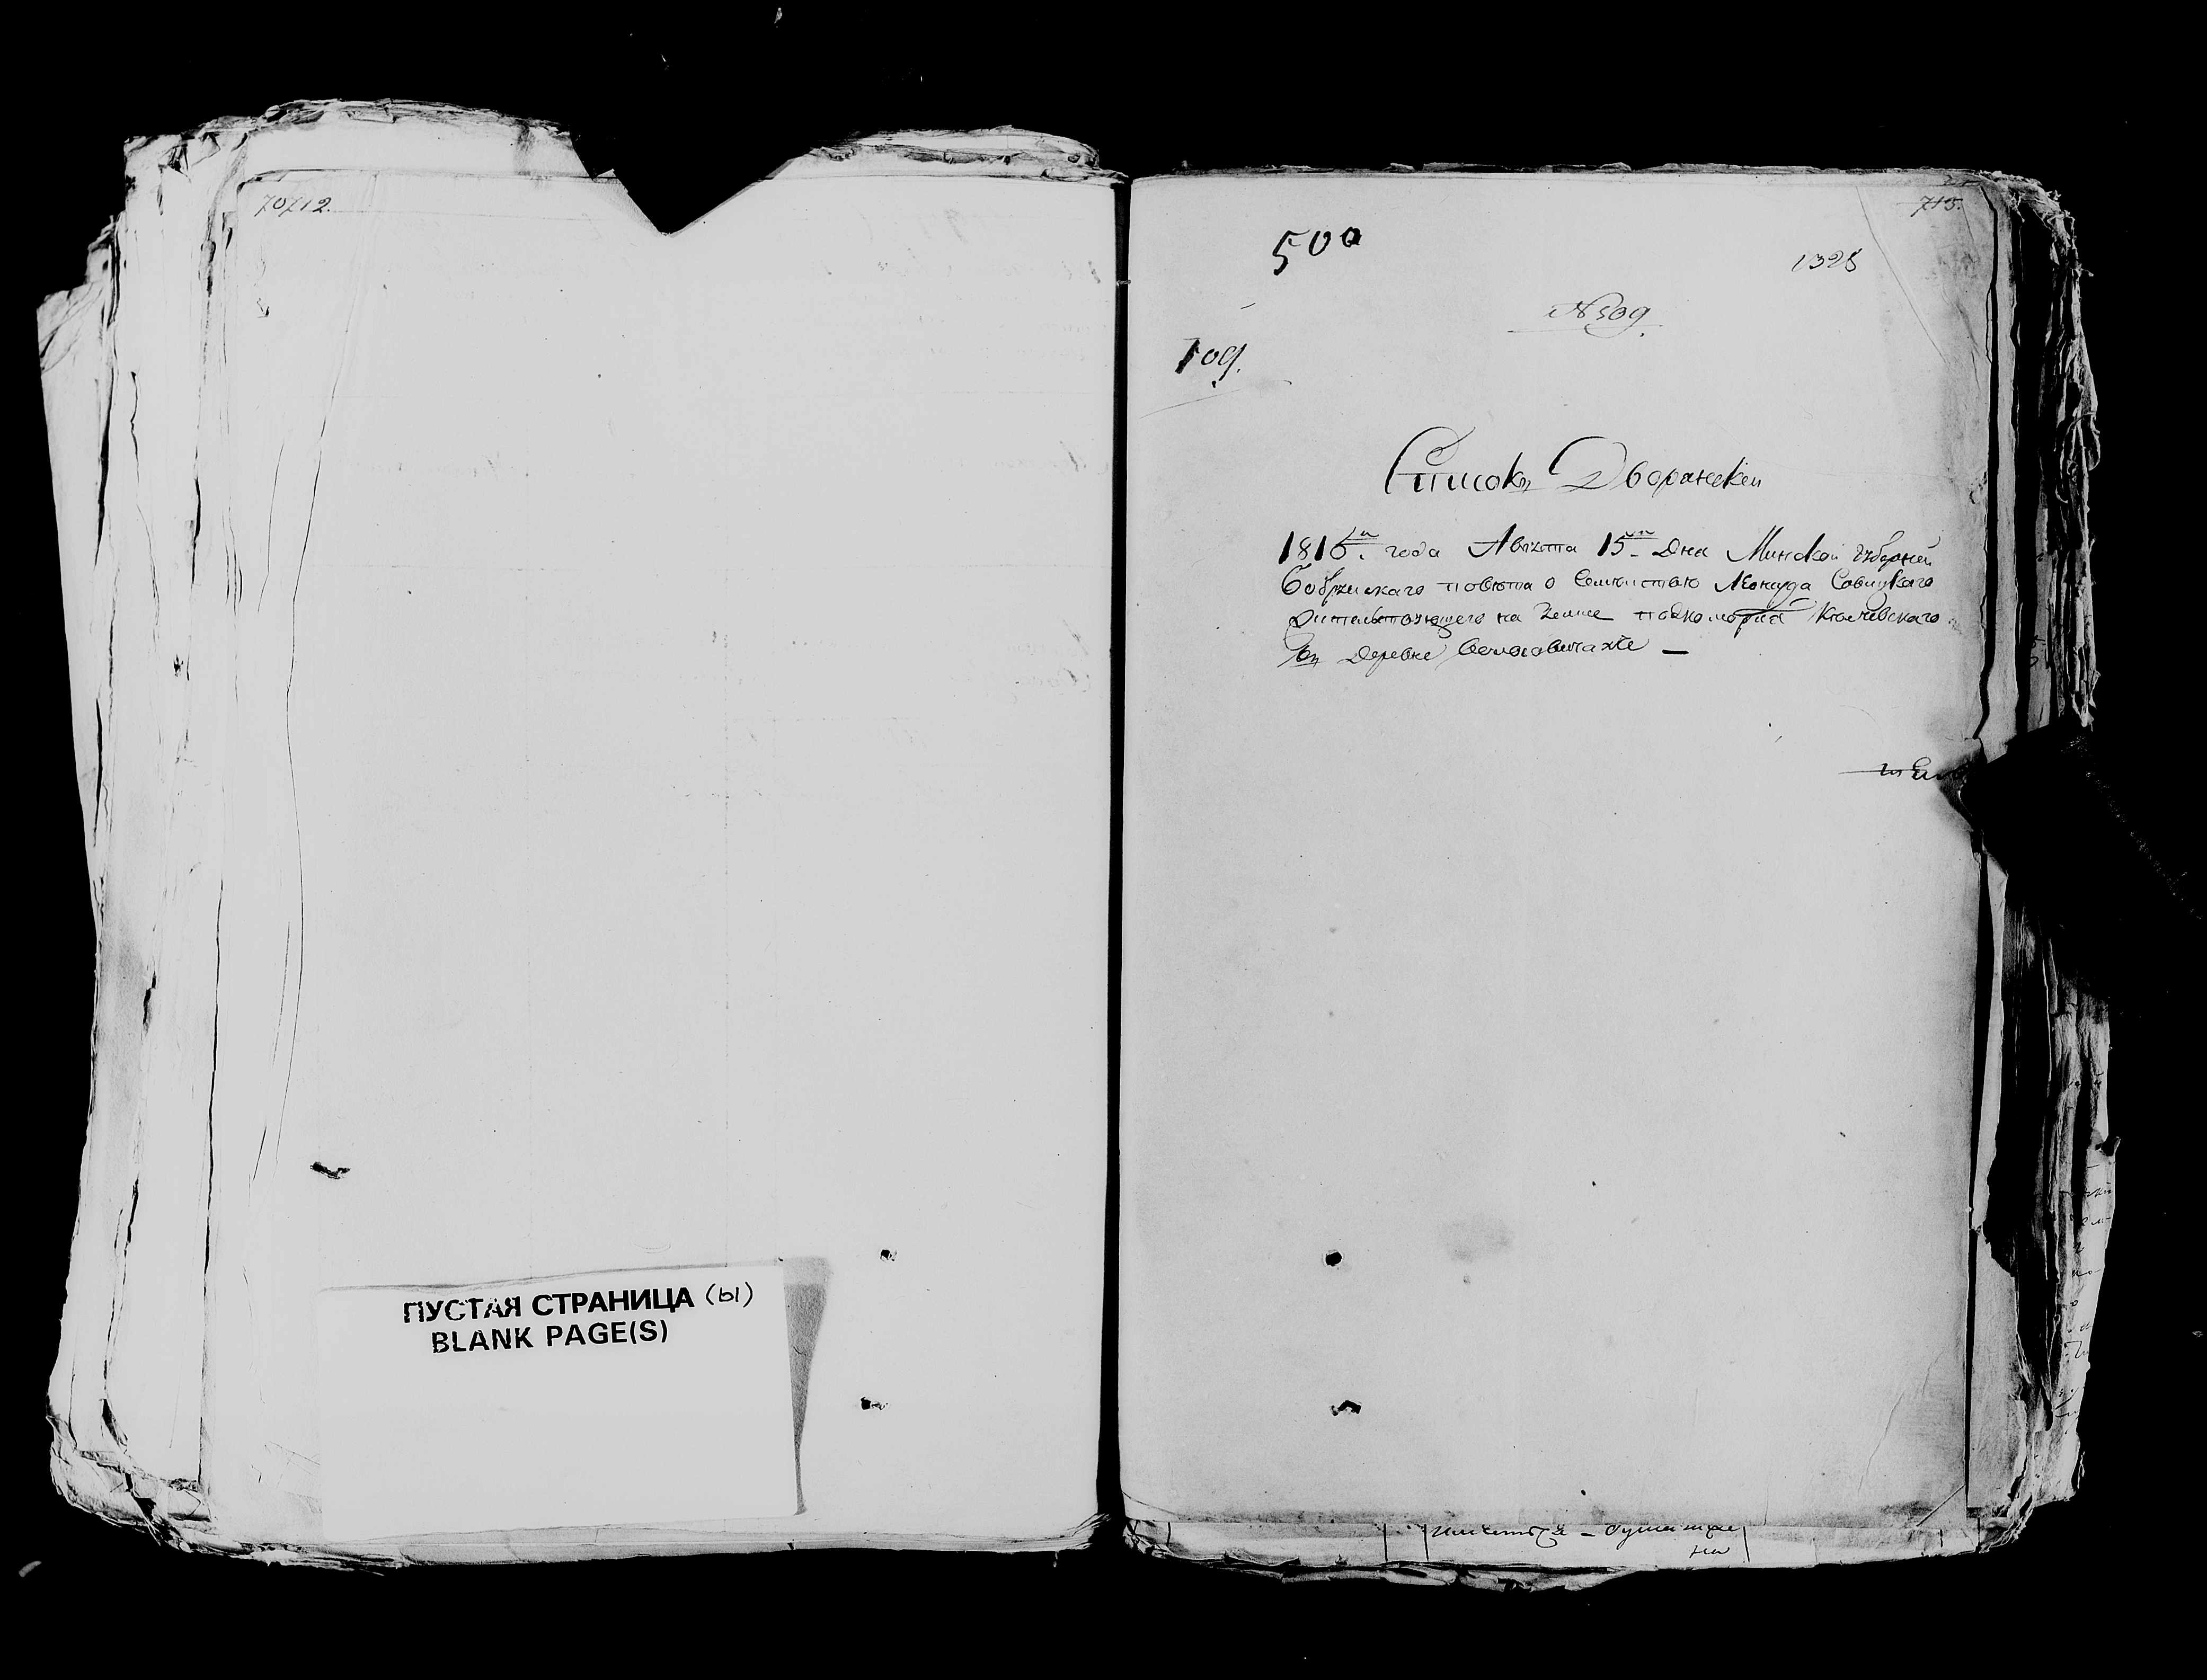 70712.
ПУСТАЯ СТРАНИЦА (Ы)
BLANK PAGE(S)
715.
500
1328
№ 509
109.
Списокъ Дворанскеи
1816го. года Августа 15го Дня Минской Губерней
Бобруискаго повюта о Семействю Леонарда Савицкаго
на Земле подкоморія Ключевскаго
Въ деревне